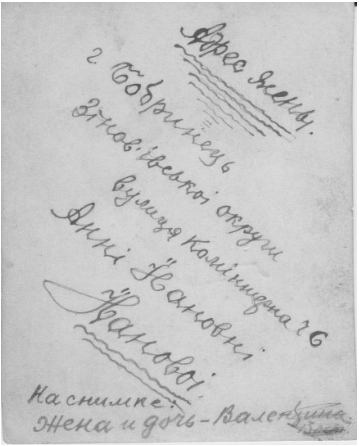 Адрес жены.
г Бобринець
Зінов'івської округи
вулиця Комінтерна ч 6
Анні Ивановні
Ивановой.
На снимке:
Жена и дочь - Валентина